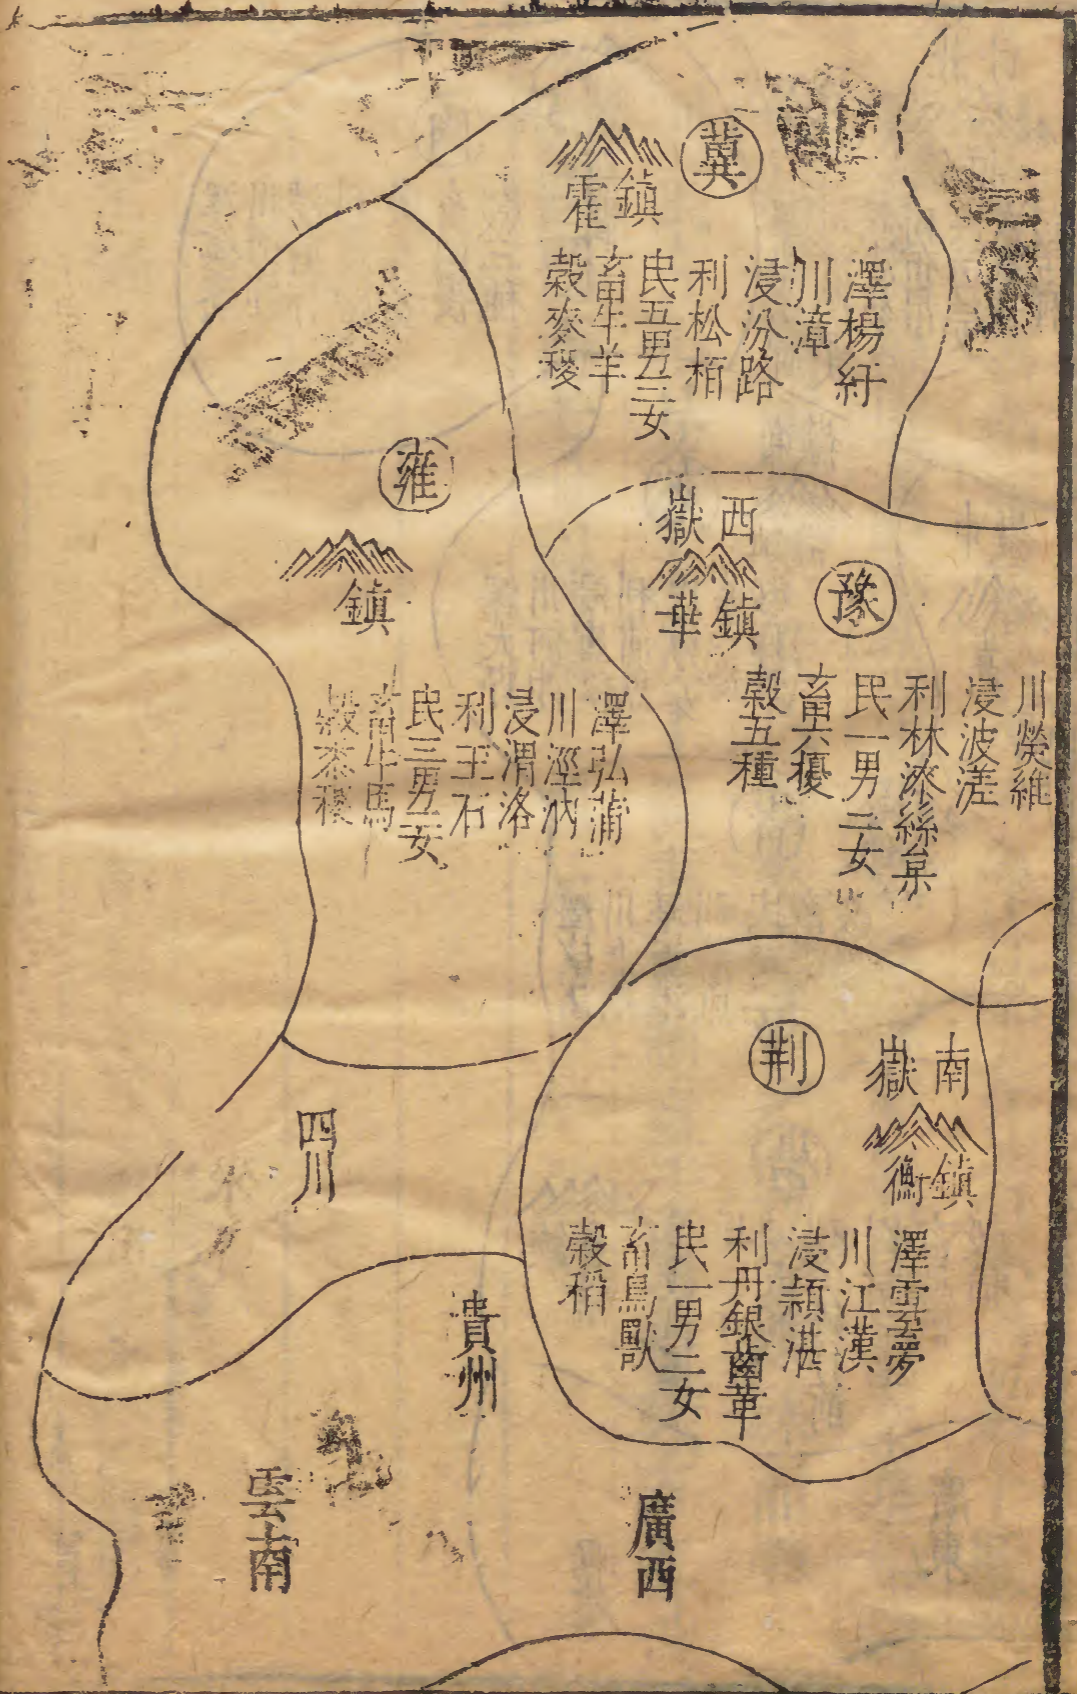 冀
鎮
霍
澤楊紆
川漳
浸汾路
利松栢
民五男三女
畜牛羊
穀麥稷
雍
鎮
澤弘蒲
川涇汭
浸渭洛
利玉石
民三男二女
畜牛馬
穀黍稷
西
嶽
鎮
華
豫
川滎雒
浸波溠
利林漆絲枲
民一男二女
畜六擾
穀五種
荆
南
嶽
鎮
衡
澤雲夢
川江漢
浸潁湛
利丹銀齒革
民一男二女
畜鳥獸
穀稻
四川
貴州
雲南
廣西